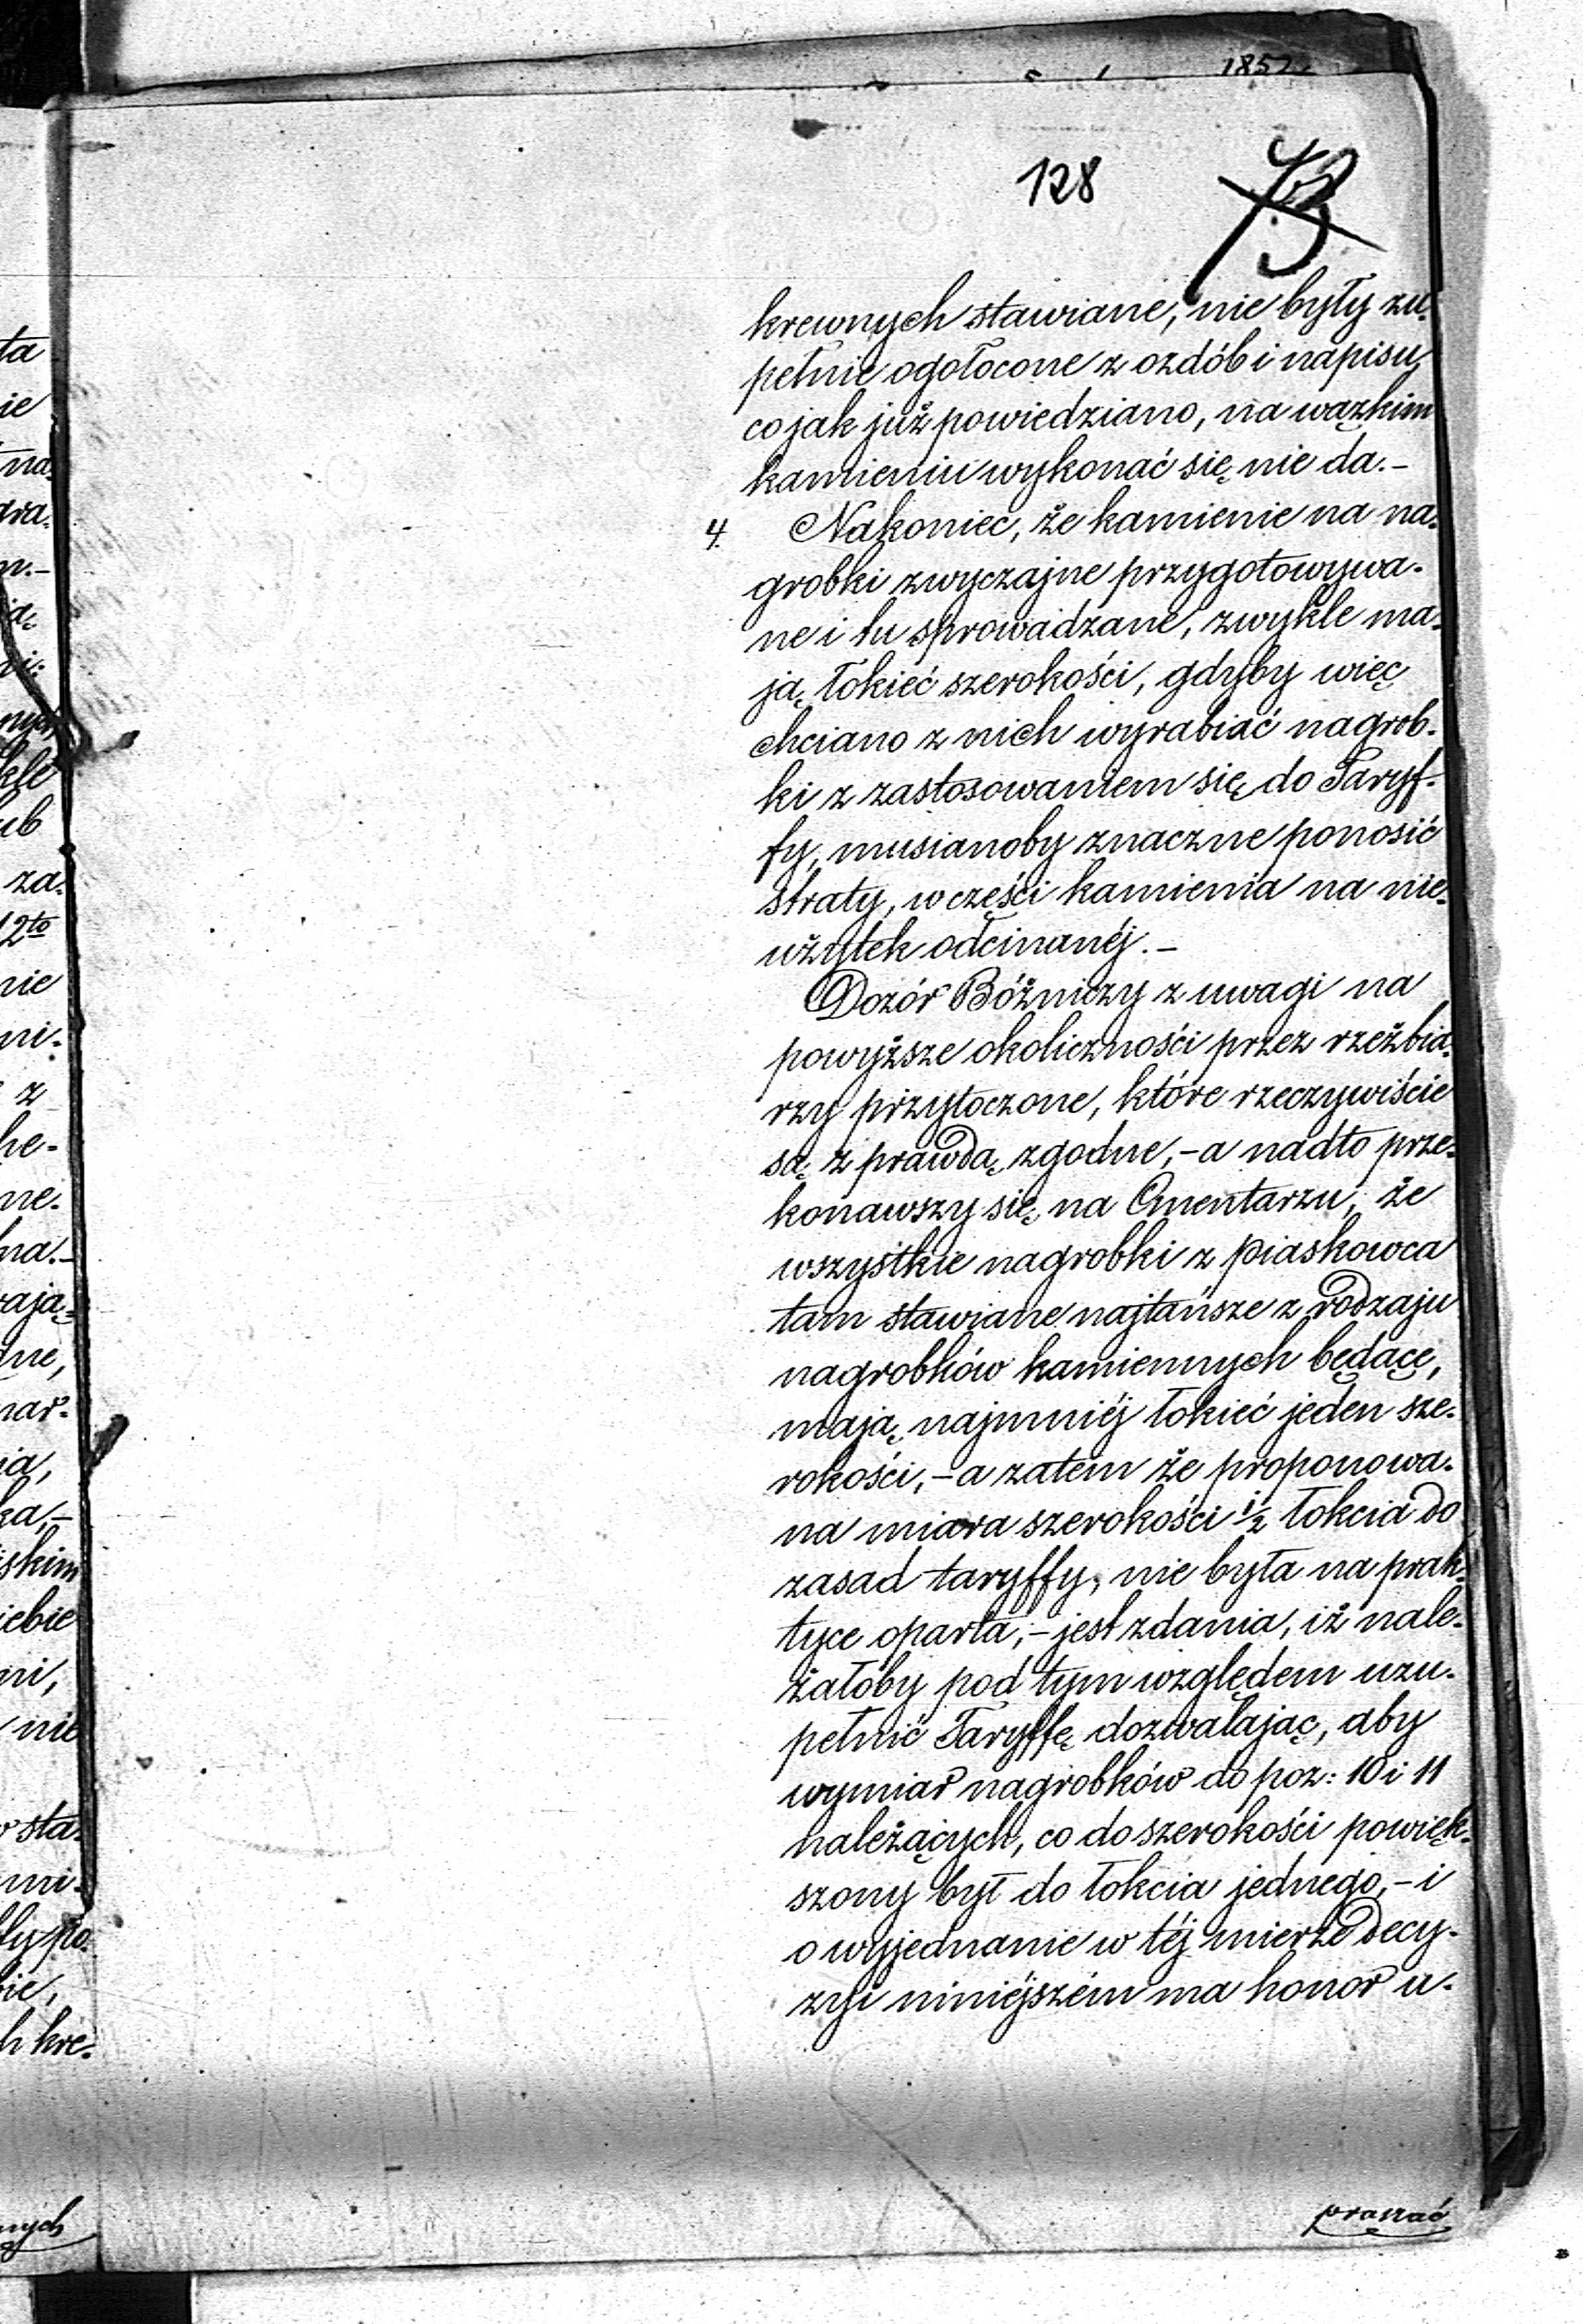 1852
128
krewnych stawiane, nie były zu-
pełnie ogołocone z ozdób i napisu,
co jak już powiedziano, na wązkim
kamieniu wykonać się nie da.-
4. Nakoniec, że kamienie na na-
grobki zwyczajne przygotowywa-
ne i tu sprowadzane, zwykle ma-
ją łokieć szerokości, gdyby więc
chciano z nich wyrabiać nagrob-
ki z zastosowaniem się do Taryf-
fy, musianoby znaczne ponosić
straty, w części kamienia na nie-
użytek odcinanéj.-
Dozór Bóżniczy z uwagi na
powyższe okoliczności przez rzeźbia-
rzy przytoczone, które rzeczywiście
są z prawdą zgodne,- a nadto prze-
konawszy się na Cmentarzu, że
wszystkie nagrobki z piaskowca
tam stawiane najtańsze z rodzaju
nagrobków kamiennych będące,
mają najmniéj łokieć jeden sze-
rokości,- a zatem że proponowa-
na miara szerokości 1/2 łokcia do
zasad taryffy, nie była na prak-
tyce oparta,- jest zdania, iż nale-
żałoby pod tym względem uzu-
pełnić Taryffę dozwalając, aby
wymiar nagrobków do poz: 10 i 11
należących, co do szerokości powięk-
szony był do łokcia jednego,- i
o wyjednanie w téj mierze decy-
zyi niniéjszém ma honor u-
praszać
ta
ie
na
gra-
kle
ub
za-
12to
nie
ni-
z
ne-
ają-
dne,
ia,
ka,-
skim
iebie
ni,
nie
sta-
mi-
po-
h kre-
nych